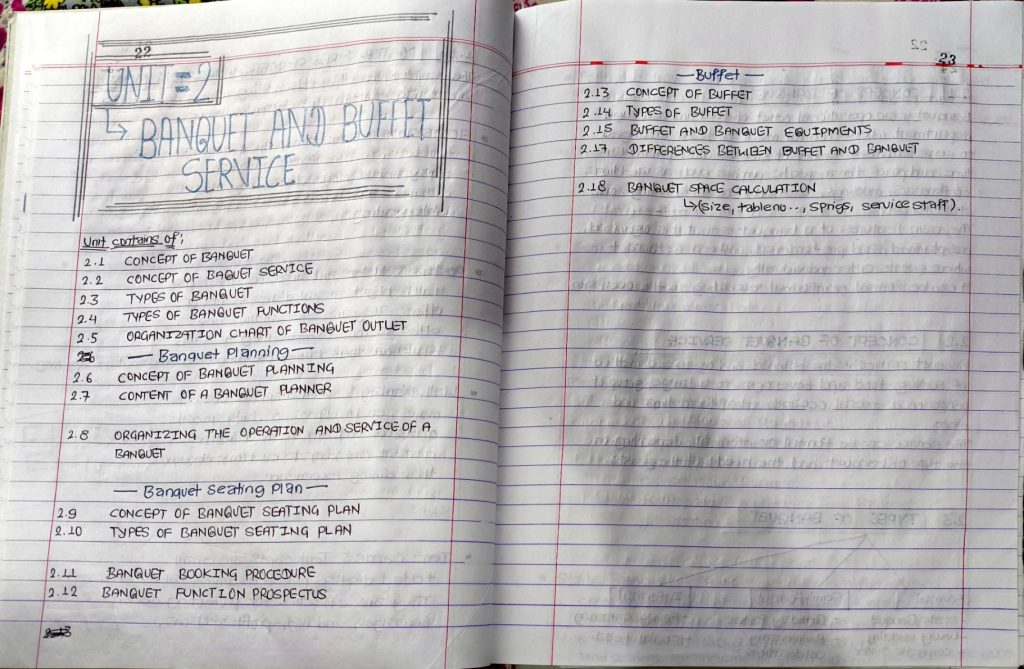 22
UNIT=2
↳ BANQUET AND BUFFET
SERVICE
Unit contains of;
2.1 CONCEPT OF BANQUET
2.2 CONCEPT OF BAQUET SERVICE
2.3 TYPES OF BANQUET
2.4 TYPES OF BANQUET FUNCTIONS
2.5 ORGANIZATION CHART OF BANQUET OUTLET
— Banquet Planning —
2.6 CONCEPT OF BANQUET PLANNING
2.7 CONTENT OF A BANQUET PLANNER
2.8 ORGANIZING THE OPERATION AND SERVICE OF A
BANQUET
— Banquet Seating Plan —
2.9 CONCEPT OF BANQUET SEATING PLAN
2.10 TYPES OF BANQUET SEATING PLAN
2.11 BANQUET BOOKING PROCEDURE
2.12 BANQUET FUNCTION PROSPECTUS
23
— Buffet —
2.13 CONCEPT OF BUFFET
2.14 TYPES OF BUFFET
2.15 BUFFET AND BANQUET EQUIPMENTS
2.17 DIFFERENCES BETWEEN BUFFET AND BANQUET
2.18 BANQUET SPACE CALCULATION
↳(size, table no.., Sprigs, service staff).